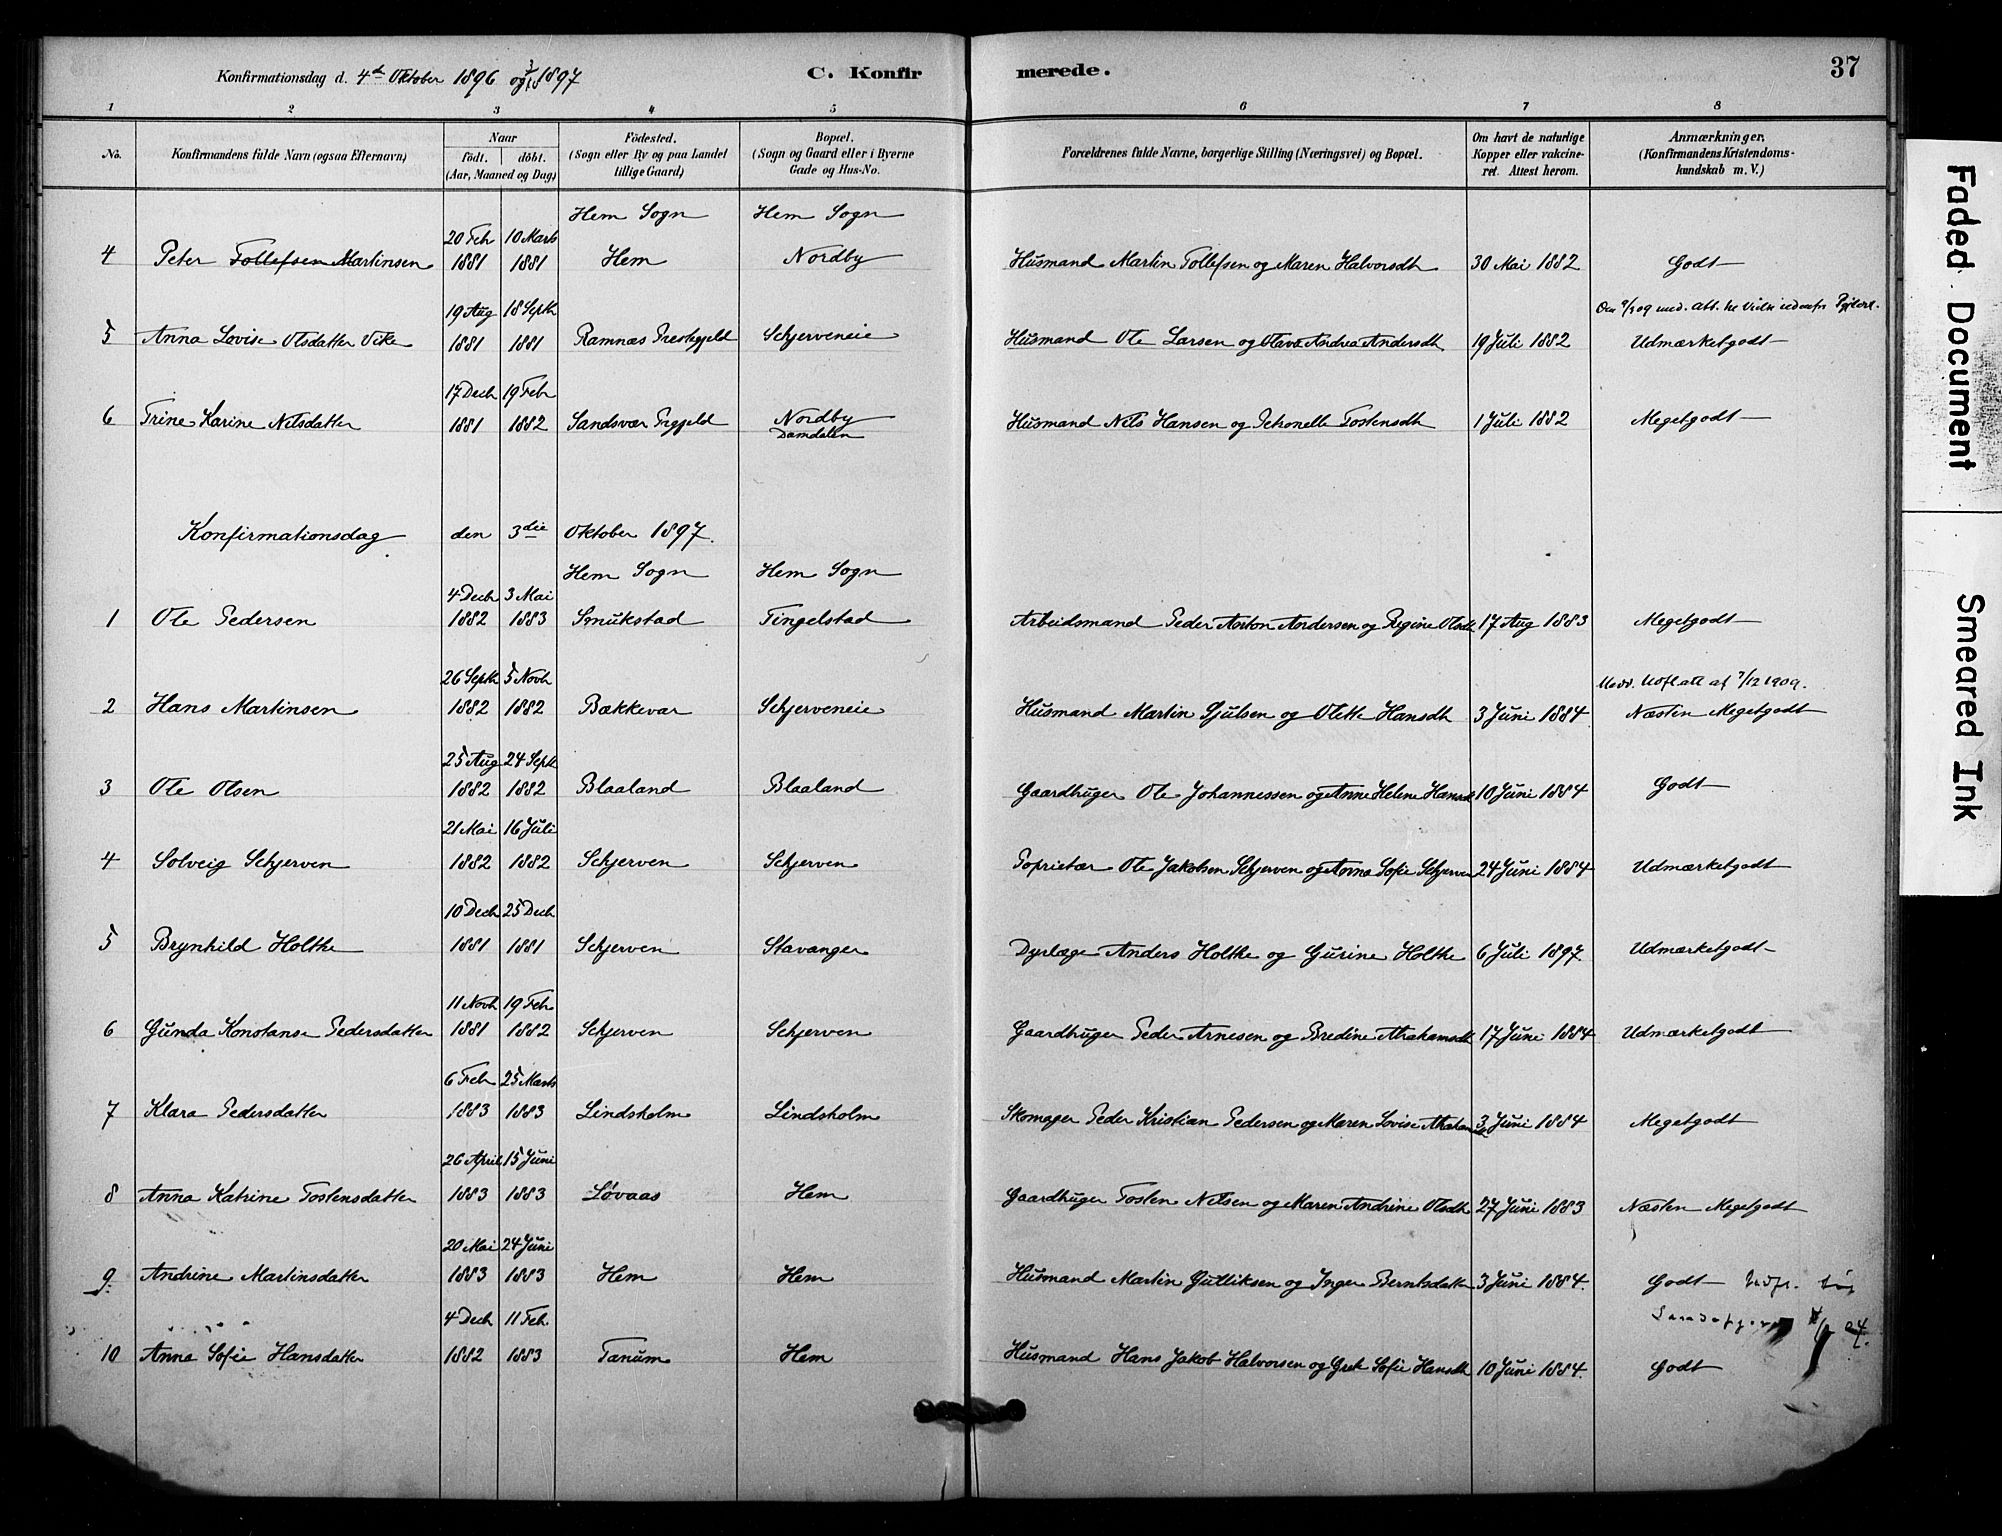 Konfirmationsdag d. 4de Oktober 1896 og 3/1 1897 C. Konfirmerede. 37
1 2 3 4 5 6 7 8
No. Konfirmandens fulde Navn (ogsaa Efternavn) Naar født. døbt. (Aar, Maaned og Dag) Fødested. (Sogn eller By og paa Landet tillige Gaard) Bopæl. (Sogn og Gaard eller i Byerne Gade og Hus-No. Forældrenes fulde Navne, borgerlige Stilling (Næringsvei) og Bopæl. Om havt de naturlige Kopper eller vakcineret. Attest herom. Anmærkninger. (Konfirmandens Kristendomskundskab m. V.)
Hem Sogn Hem Sogn
20 Feb 10 Marts
4 Peter Tollefsen Martinsen 1881 1881 Hem Nordby Husmand Martin Tollefsen og Maren Halvorsdt 30 Mai 1882 Godt
19 Aug 18 Septb
5 Anna Lovise Olsdatter Vike 1881 1881 Ramnæs Prestegjeld Schjerveneie Husmand Ole Larsen og Olava Andrea Andersdt 19 Juli 1882 Udmærketgodt
17 Decb 19 Feb
6 Trine Karine Nilsdatter 1881 1882 Sandsvær Prgjeld Nordby Husmand Nils Hansen og Pehonelle Tostensdt 1 Juli 1882 Megetgodt
Damdalen
Konfirmationsdag den 3die Oktober 1897.
Hem Sogn Hem Sogn
4 Decb 3 Mai
1 Ole Pedersen 1882 1883 Smukstad Tingelstad Arbeidsmand Peder Anton Andersen og Regine Olsdt 17 Aug 1883 Megetgodt
26 Septb 5 Novb 7/12 1909.
2 Hans Martinsen 1882 1882 Bækkevar Schjerveneie Husmand Martin Gjulsen og Olette Hansdt 3 Juni 1884 Næsten Megetgodt
25 Aug 24 Septb
3 Ole Olsen 1882 1882 Blaaland Blaaland Gaardbruger Ole Johannessen og Anne Helene Hansdt 10 Juni 1884 Godt
21 Mai 16 Juli
4 Solveig Schjerven 1882 1882 Schjerven Schjerven Poprietær Ole Jakobsen Schjerven og Anna Sofie Schjerven 24 Juni 1884 Udmærketgodt
10 Decb 25 Decb
5 Brynhild Holtke 1881 1881 Schjerven Stavanger Dyrlæge Anders Holtke og Gurine Holtke 6 Juli 1897 Udmærketgodt
11 Novb 19 Feb
6 Gunda Konstanse Pedersdatter 1881 1882 Schjerven Schjerven Gaardbruger Peder Arnesen og Bredine Abrahamsdt 17 Juni 1884 Udmærketgodt
6 Feb 25 Marts
7 Klara Pedersdatter 1883 1883 Lindsholm Lindsholm Skomager Peder Kristian Pedersen og Maren Lovise 3 Juni 1884 Megetgodt
26 April 15 Juni
8 Anna Katrine Tostensdatter 1883 1883 Løvaas Hem Gaardbruger Tosten Nilsen og Maren Andrine Olsdt 27 Juni 1883 Næsten Megetgodt
20 Mai 24 Juni
9 Andrine Martinsdatter 1883 1883 Hem Hem Husmand Martin Gulliksen og Inger Berntsdatter 3 Juni 1884. Godt
4 Decb 11 Feb.
10 Anna Sofie Hansdatter 1882 1883 Tanum Hem Husmand Hans Jakob Halvorsen og Grete Sofie Hansdt 10 Juni 1884. Godt
Faded Document
Smeared Ink